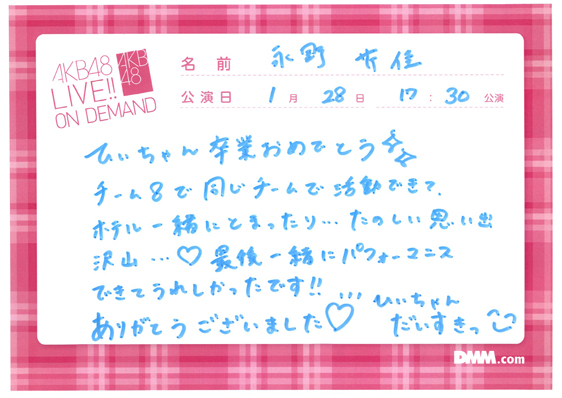 AKB48
LIVE!!
ON DEMAND
AKB
48
名前 永野 芹佳
公演日 1月 28日 17:30 公演
ひぃちゃん 卒業おめでとう
チーム8で同じチームで活動できて、
ホテル一緒にとまったり…たのしい思い出
沢山…♡最後一緒にパフォーマンス
できてうれしかったです!!
ありがとうございました♡
ひぃちゃん
だいすきっ
DMM.com